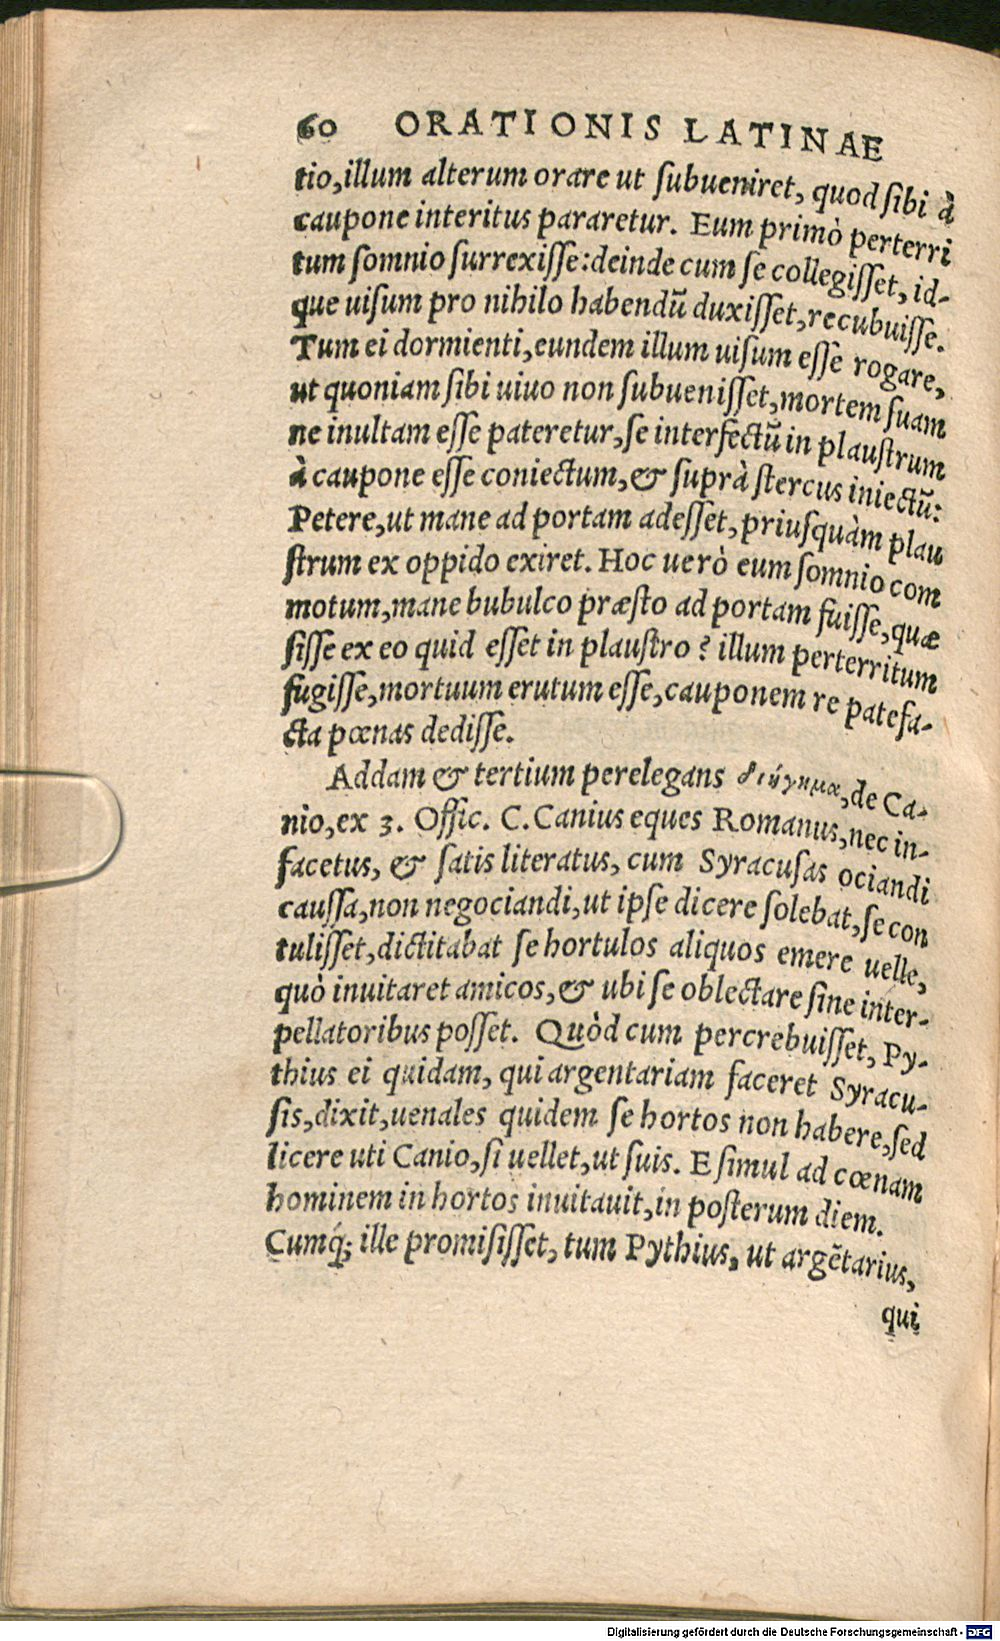 60 ORATIONIS LATINAE
tio, illum alterum orare ut ſubueniret, quod ſibi à
caupone interitus pararetur. Eum primò perterri
tum ſomnio ſurrexiſſe: deinde cum ſe collegiſſet, id-
que uiſum pro nihilo habendū duxiſſet, recubuiſſe.
Tum ei dormienti, eundem illum uiſum eſſe rogare,
ut quoniam ſibi uiuo non ſubueniſſet, mortem ſuam
ne inultam eſſe pateretur, ſe interfectū in plauſtrum
à caupone eſſe coniectum, & ſuprà ſtercus iniectū:
Petere, ut mane ad portam adeſſet, priuſquàm plau
ſtrum ex oppido exiret. Hoc uerò eum ſomnio com
motum, mane bubulco præſto ad portam fuiſſe, quæ
ſiſſe ex eo quid eſſet in plauſtro? illum perterritum
fugiſſe, mortuum erutum eſſe, cauponem re patefa-
cta pœnas dediſſe.
Addam & tertium perelegans διήγημα, de Ca-
nio, ex 3. Offic. C. Canius eques Romanus, nec in-
facetus, & ſatis literatus, cum Syracuſas ociandi
cauſſa, non negociandi, ut ipſe dicere ſolebat, ſe con
tuliſſet, dictitabat ſe hortulos aliquos emere uelle,
quò inuitaret amicos, & ubi ſe oblectare ſine inter-
pellatoribus poſſet. Quòd cum percrebuiſſet, Py-
thius ei quidam, qui argentariam faceret Syracu-
ſis, dixit, uenales quidem ſe hortos non habere, ſed
licere uti Canio, ſi uellet, ut ſuis. E ſimul ad cœnam
hominem in hortos inuitauit, in poſterum diem.
Cumq́; ille promiſiſſet, tum Pythius, ut argētarius,
qui
Digitalisierung gefördert durch die Deutsche Forschungsgemeinschaft - DFG